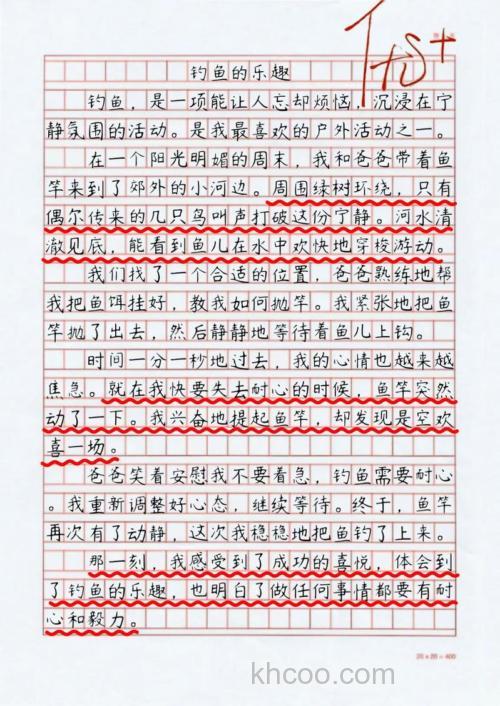 优+
钓鱼的乐趣
钓鱼，是一项能让人忘却烦恼，沉浸在宁
静氛围的活动。是我最喜欢的户外活动之一。
在一个阳光明媚的周末，我和爸爸带着鱼
竿来到了郊外的小河边。周围绿树环绕，只有
偶尔传来的几只鸟叫声打破这份宁静。河水清
澈见底，能看到鱼儿在水中欢快地穿梭游动。
我们找了一个合适的位置，爸爸熟练地帮
我把鱼饵挂好，教我如何抛竿。我紧张地把鱼
竿抛了出去，然后静静地等待着鱼儿上钩。
时间一分一秒地过去，我的心情也越来越
焦急。就在我快要失去耐心的时候，鱼竿突然
动了一下。我兴奋地提起鱼竿，却发现是空欢
喜一场。
爸爸笑着安慰我不要着急，钓鱼需要耐心
。我重新调整好心态，继续等待。终于，鱼竿
再次有了动静，这次我稳稳地把鱼钓了上来。
那一刻，我感受到了成功的喜悦，体会到
了钓鱼的乐趣，也明白了做任何事情都要有耐
心和毅力。
20×20=400
khcoo.com